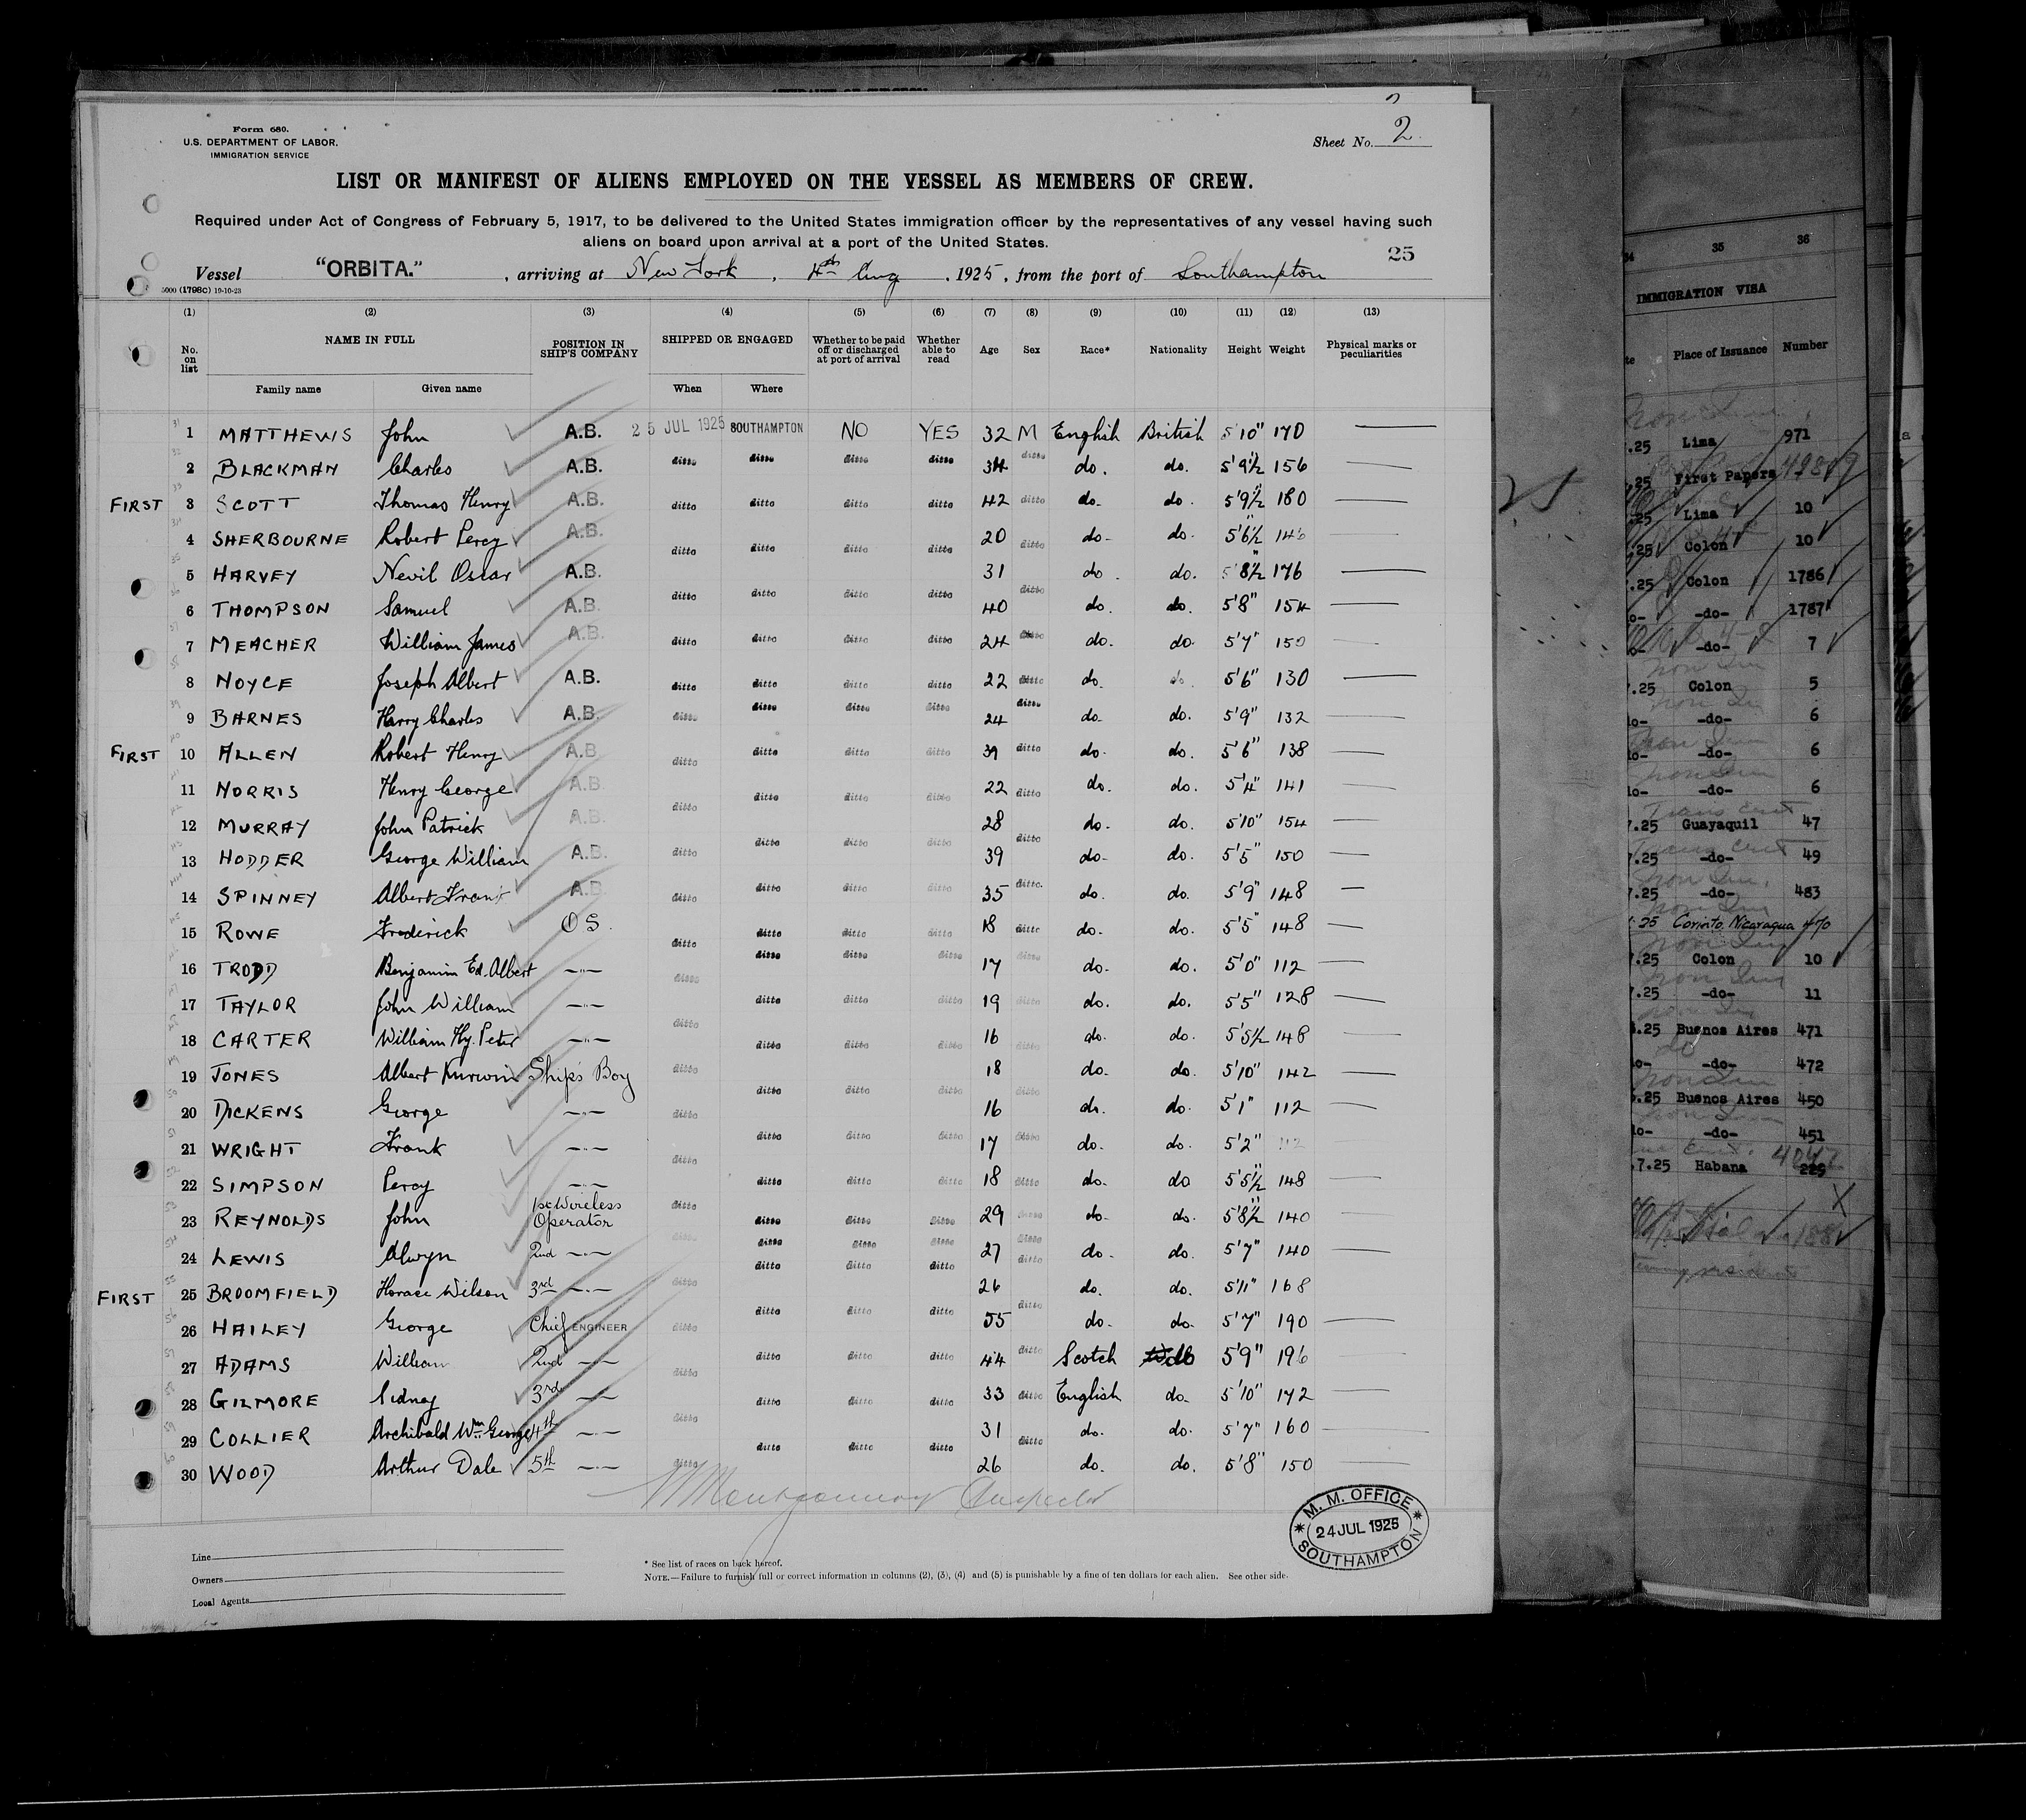 2
Form 680.
U.S. DEPARTMENT OF LABOR.
IMMIGRATION SERVICE
Sheet No. 2
LIST OR MANIFEST OF ALIENS EMPLOYED ON THE VESSEL AS MEMBERS OF CREW.
Required under Act of Congress of February 5, 1917, to be delivered to the United States immigration officer by the representatives of any vessel having such
aliens on board upon arrival at a port of the United States.
25
Vessel "ORBITA." , arriving at New York , 4th Aug , 1925 , from the port of Southampton
5000 (1798C) 19-10-23
(1) (2) (3) (4) (5) (6) (7) (8) (9) (10) (11) (12) (13)
No. on list NAME IN FULL POSITION IN SHIP'S COMPANY SHIPPED OR ENGAGED Whether to be paid off or discharged at port of arrival Whether able to read Age Sex Race* Nationality Height Weight Physical marks or peculiarities
Family name Given name When Where
1 MATTHEWS John A.B. 25 JUL 1925 SOUTHAMPTON NO YES 32 M English British 5'10" 170
2 BLACKMAN Charles A.B. ditto ditto ditto ditto 34 ditto do. do. 5'9½" 156
FIRST 3 SCOTT Thomas Henry A.B. ditto ditto ditto ditto 42 ditto do. do. 5'9½" 180
4 SHERBOURNE Robert Percy A.B. ditto ditto ditto ditto 20 ditto do. do. 5'6½" 146
5 HARVEY Nevil Oscar A.B. 31 do. do. 5'8½" 176
6 THOMPSON Samuel A.B. ditto ditto ditto ditto 40 ditto do. do. 5'8" 154
7 MEACHER William James A.B. ditto ditto ditto ditto 24 ditto do. do. 5'7" 150
8 NOYCE Joseph Albert A.B. ditto ditto ditto ditto 22 ditto do. do. 5'6" 130
9 BARNES Harry Charles A.B. ditto ditto ditto ditto 24 ditto do. do. 5'9" 132
FIRST 10 ALLEN Robert Henry A.B. ditto ditto ditto ditto 39 ditto do. do. 5'6" 138
11 NORRIS Henry George A.B. ditto ditto ditto 22 ditto do. do. 5'4" 141
12 MURRAY John Patrick A.B. ditto 28 do. do. 5'10" 154
13 HODDER George William A.B. ditto ditto ditto ditto 39 ditto do. do. 5'5" 150
14 SPINNEY Albert Frank A.B. ditto ditto ditto ditto 35 ditto. do. do. 5'9" 148
15 ROWE Frederick O S. ditto ditto ditto ditto 18 ditto do. do. 5'5" 148
16 TRODD Benjamin Ed. Albert —"— ditto ditto ditto ditto 17 do. do. 5'0" 112
17 TAYLOR John William —"— ditto ditto ditto 19 ditto do. do. 5'5" 128
18 CARTER William Hy. Peter —"— ditto ditto ditto ditto 16 ditto do. do. 5'5½ 148
19 JONES Albert Ship's Boy ditto 18 do. do. 5'10" 142
20 DICKENS George —"— ditto ditto ditto ditto 16 ditto do. do. 5'1" 112
21 WRIGHT Frank —"— ditto ditto ditto ditto 17 ditto do. do. 5'2" 112
22 SIMPSON Percy —"— ditto ditto ditto 18 ditto do. do 5'5½" 148
23 REYNOLDS John 1st Wireless Operator ditto ditto ditto ditto 29 ditto do. do. 5'8½" 140
24 LEWIS Alwyn 2nd —"— ditto ditto ditto 27 ditto do. do. 5'7" 140
FIRST 25 BROOMFIELD Horace Wilson 3rd —"— ditto ditto ditto ditto 26 ditto do. do. 5'11" 168
26 HAILEY George Chief ENGINEER ditto ditto ditto ditto 55 ditto do. do. 5'7" 190
27 ADAMS William 2nd —"— ditto ditto ditto ditto 44 ditto Scotch do 5'9" 196
28 GILMORE Sidney 3rd —"— ditto ditto ditto 33 ditto English do. 5'10" 172
29 COLLIER Archibald Wm. George 4th —"— ditto 31 do. do. 5'7" 160
30 WOOD Arthur Dale 5th —"— ditto ditto ditto ditto 26 ditto do. do. 5'8" 150
Montgomery Inspector
M. M. OFFICE
24 JUL 1925
SOUTHAMPTON
Line
Owners
Local Agents
* See list of races on back hereof.
NOTE.—Failure to furnish full or correct information in columns (2), (3), (4) and (5) is punishable by a fine of ten dollars for each alien. See other side.
35 36
IMMIGRATION VISA
Place of Issuance Number
.25 Lima 971
.25 First Papers
.25 Lima 10
.25 Colon 10
.25 Colon 1786
-do- 1787
-do- 7
7.25 Colon 5
-do- 6
-do- 6
-do- 6
7.25 Guayaquil 47
7.25 -do- 49
7.25 -do- 483
25 Corinto, Nicaragua
7.25 Colon 10
7.25 -do- 11
.25 Buenos Aires 471
-do- 472
.25 Buenos Aires 450
-do- 451
.7.25 Habana 229